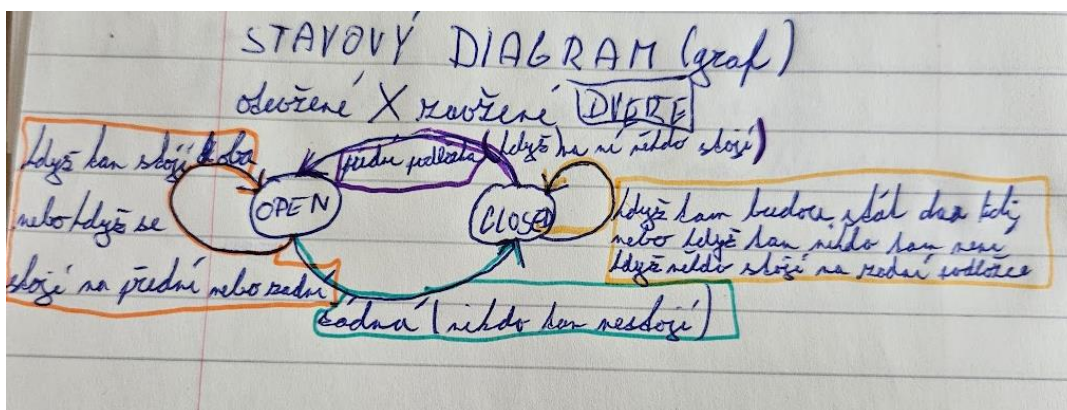 STAVOVÝ DIAGRAM (graf)
otevřené X zavřené DVEŘE
když tam stojí oba
nebo když se
stojí na přední nebo zadní
přední podložka (když) na ní někdo stojí)
OPEN
CLOSED
když tam budou stát dva
nebo když tam nikdo tam není
když někdo stojí na zadní podložce
žádná (nikdo tam nestojí)